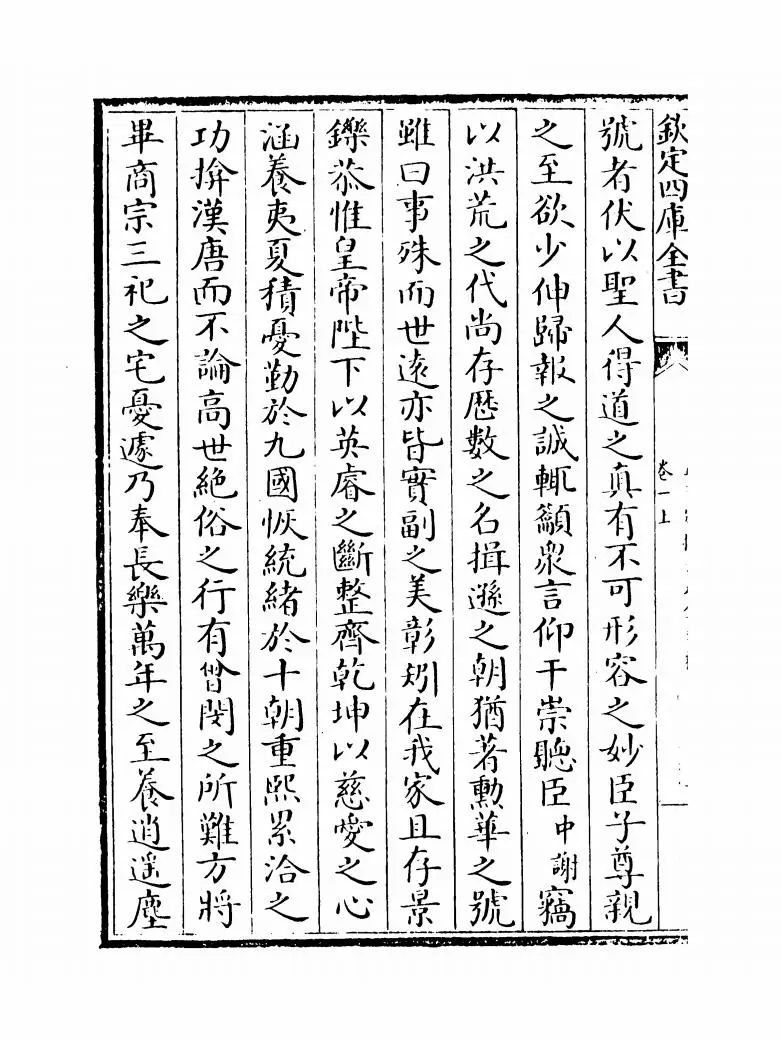 欽定四庫全書
卷一上
號者伏以聖人得道之真有不可形容之妙臣子尊親
之至欲少伸歸報之誠輒籲衆言仰干崇聽臣中謝竊
以洪荒之代尚存歷數之名揖遜之朝猶著勲華之號
雖曰事殊而世逺亦皆實副之美彰矧在我家且存景
鑠恭惟皇帝陛下以英睿之斷整齊乾坤以慈愛之心
涵養夷夏積憂勤於九國恢統緒於十朝重熙累洽之
功揜漢唐而不論高世絶俗之行有曾閔之所難方將
畢商宗三祀之宅憂遽乃奉長樂萬年之至養逍遥塵